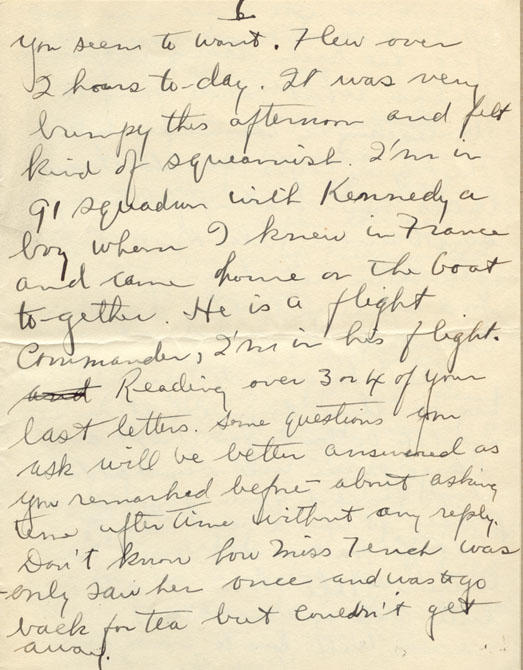 6
you seem to want. Flew over
2 hours to-day. It was very
bumpy this afternoon and felt
kind of squeamish. I'm in
91 squadron with Kennedy a
boy whom I knew in France
and came home on the boat
to-gether. He is a flight
Commander, I'm in his flight.
and Reading over 3 or 4 of your
last letters. Some questions you
ask will be better answered as
you remarked before about asking
time after time without any reply.
Don't know how Miss Tench was
-only saw her once and was to go
back for tea but couldn't get
away.